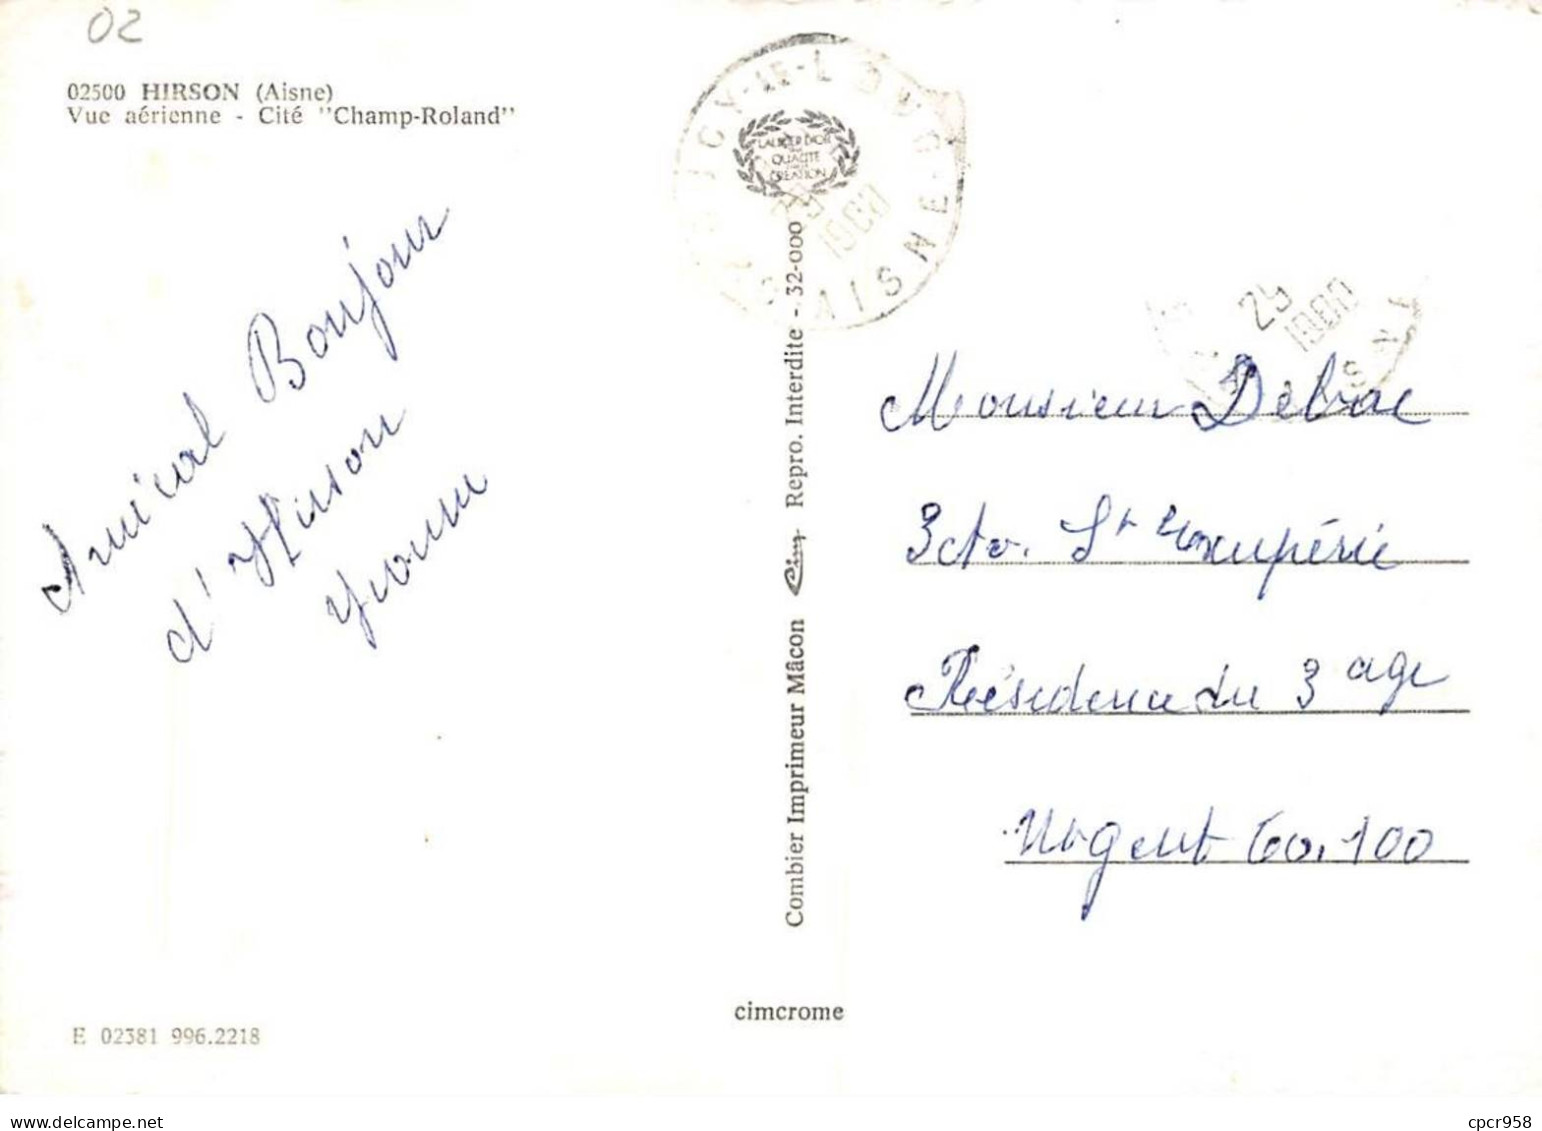 02
02500 HIRSON (Aisne)
Vue aérienne - Cité "Champ-Roland"
Amical Bonjour
d'Hirson
Yvonne
LAURIER D'OR
QUALITÉ
CRÉATION
AISNE
1980
29
1980
Combier Imprimeur Mâcon Cim Repro. Interdite - 32-000
Monsieur Debrae
3 St Exupérie
Résidence du 3 age
Nogent 60.100
cimcrome
E 02381 996.2218
cpcr958